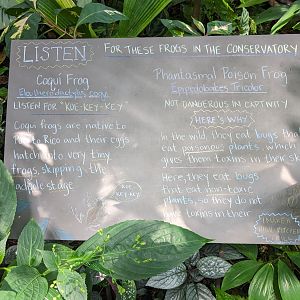 LISTEN FOR THESE FROGS IN THE CONSERVATORY
Coqui Frog
Eleutherodactylus
LISTEN FOR "KOE-KEY-KEY"
Coqui frogs are native to
Puerto Rico and their eggs
hatch into very tiny
frogs, skipping the
tadpole stage
KOE
KEY KEY
Phantasmal Poison Frog
Epipedobates Tricolor
NOT DANGEROUS IN CAPTIVITY
HERE'S WHY
In the wild, they eat bugs that
eat poisonous plants, which
gives them toxins in their skin
Here, they eat bugs
that eat non-toxic
plants, so they do not
have toxins in their